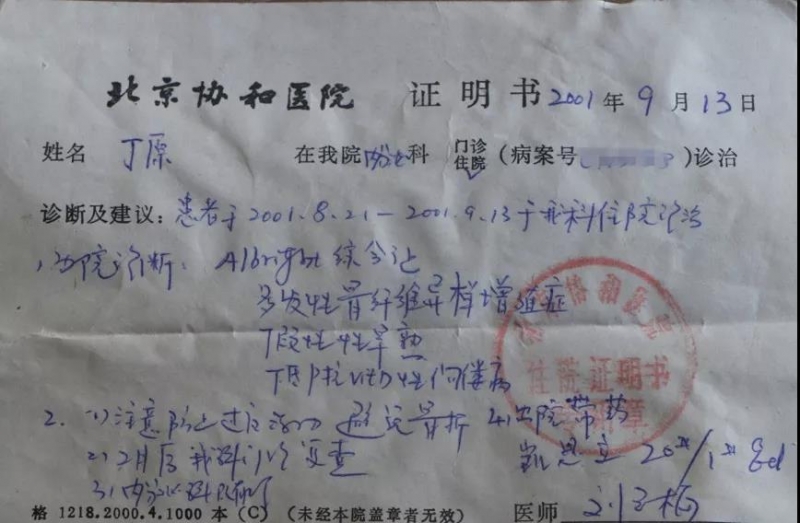 北京协和医院 证明书 2001年9月13日
姓名 丁原 在我院内分泌科 门诊 住院 (病案号 )诊治
诊断及建议：患者于2001.8.21－2001.9.13于我科住院诊治
1、出院诊断：Albright综合征
多发性骨纤维异样增殖症
假性性早熟
抗VitD性佝偻病
2. 1)注意防止过度活动 避免骨折 4.出院带药
2)2月后我科门诊复查
3)内分泌科
住院证明书
格 1218.2000.4.1000 本 (C) (未经本院盖章者无效) 医师